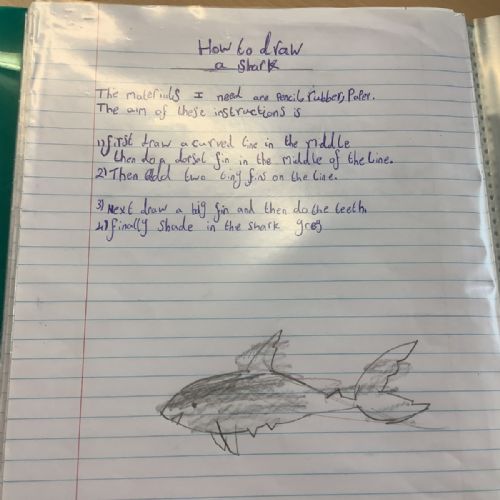 How to draw
a shark
The materials I need are Pencil, rubber, Paper.
The aim of these instructions is
1) first draw a curved line in the middle
then do a dorsel fin in the middle of the line.
2) Then add two tiny fins on the line.
3) Next draw a big fin and then do the teeth.
4) finally shade in the shark grey